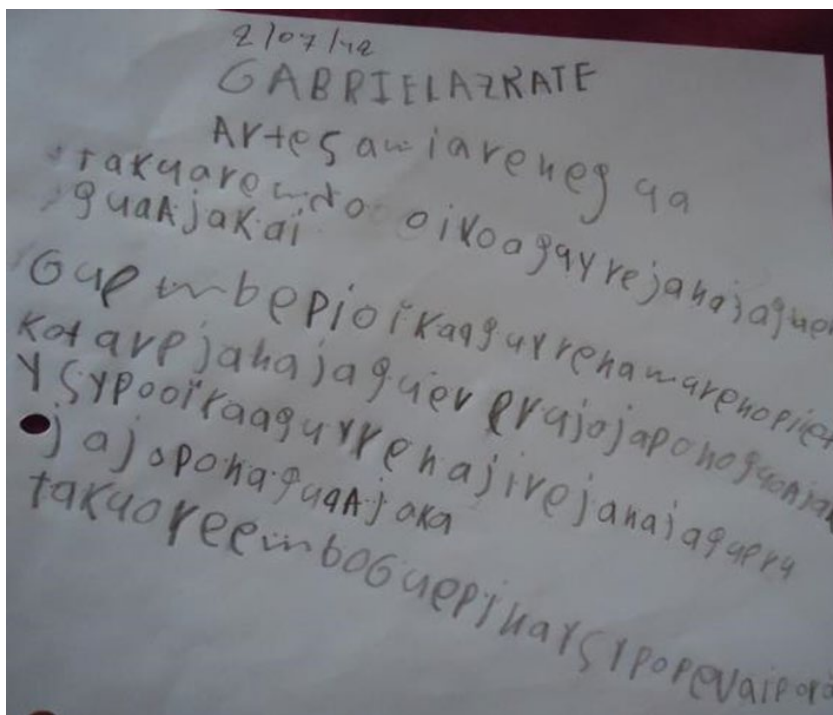 2/07/12
GABRIELAZRATE
Artesaniareheg ua
takuarembo oikoaguyrejahajague
guaAjakai
Guembepioikaaguyrehamarehopier
Kotarejahajaguerrerujajapohoguaajak
YSYPooikaaguyrrehajirejahajagueru
jajopohaguaAjaka
takuareemboGuepihaYSYPOPevaipora